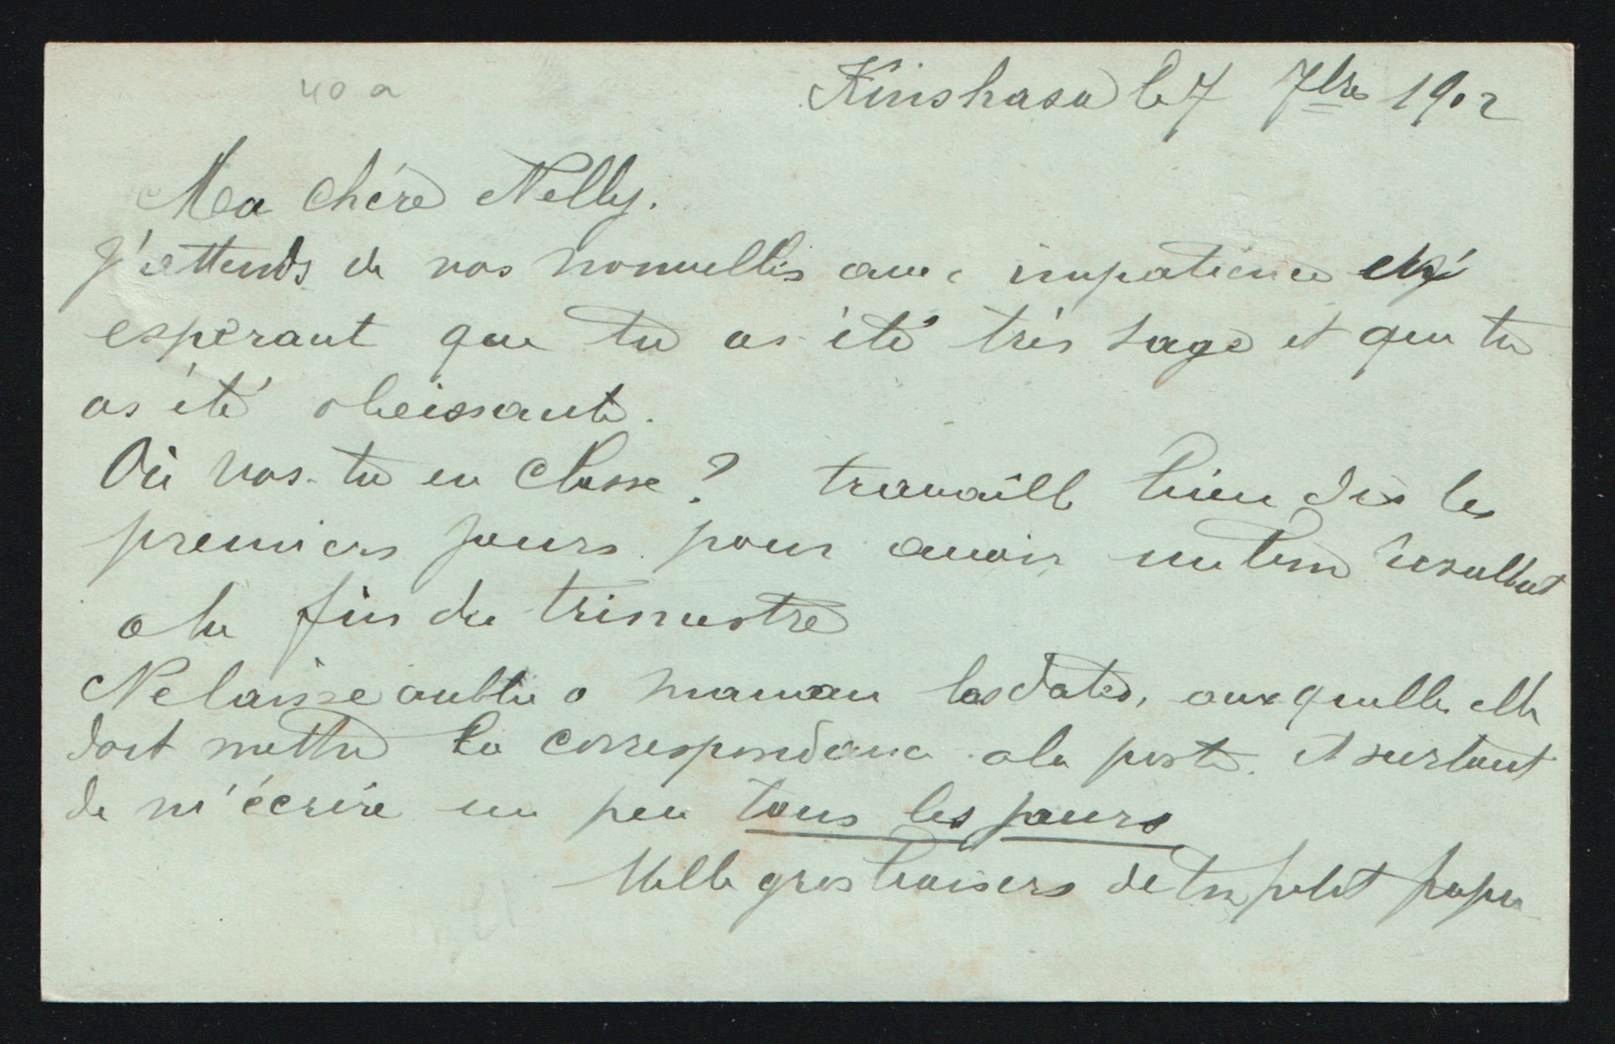 40 a
Kinshasa le 7 7bre 1902
Ma chère Nelly.
J'attends de vos nouvelles avec impatience
espérant que tu as été très sage et que tu
as été obeissante.
Où vas-tu en classe? travaille bien dès les
premiers jours pour avoir un bon résultat
a la fin du trimestre
Ne laisse oublier a maman les dates, auxquelles elle
doit mettre la correspondance a la poste. et surtout
de m'écrire un peu tous les jours
Mille gros baisers de ton petit papa